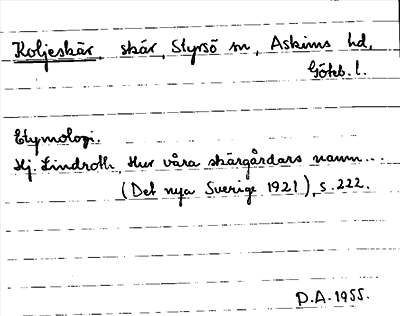 Koljeskär, skär, Styrsö sn, Askims hd,
Göteb. l.
Etymologi.
Hj. Lindroth, Hur våra skärgårdars namn...
(Det nya Sverige 1921), s. 222.
D.A. 1955.